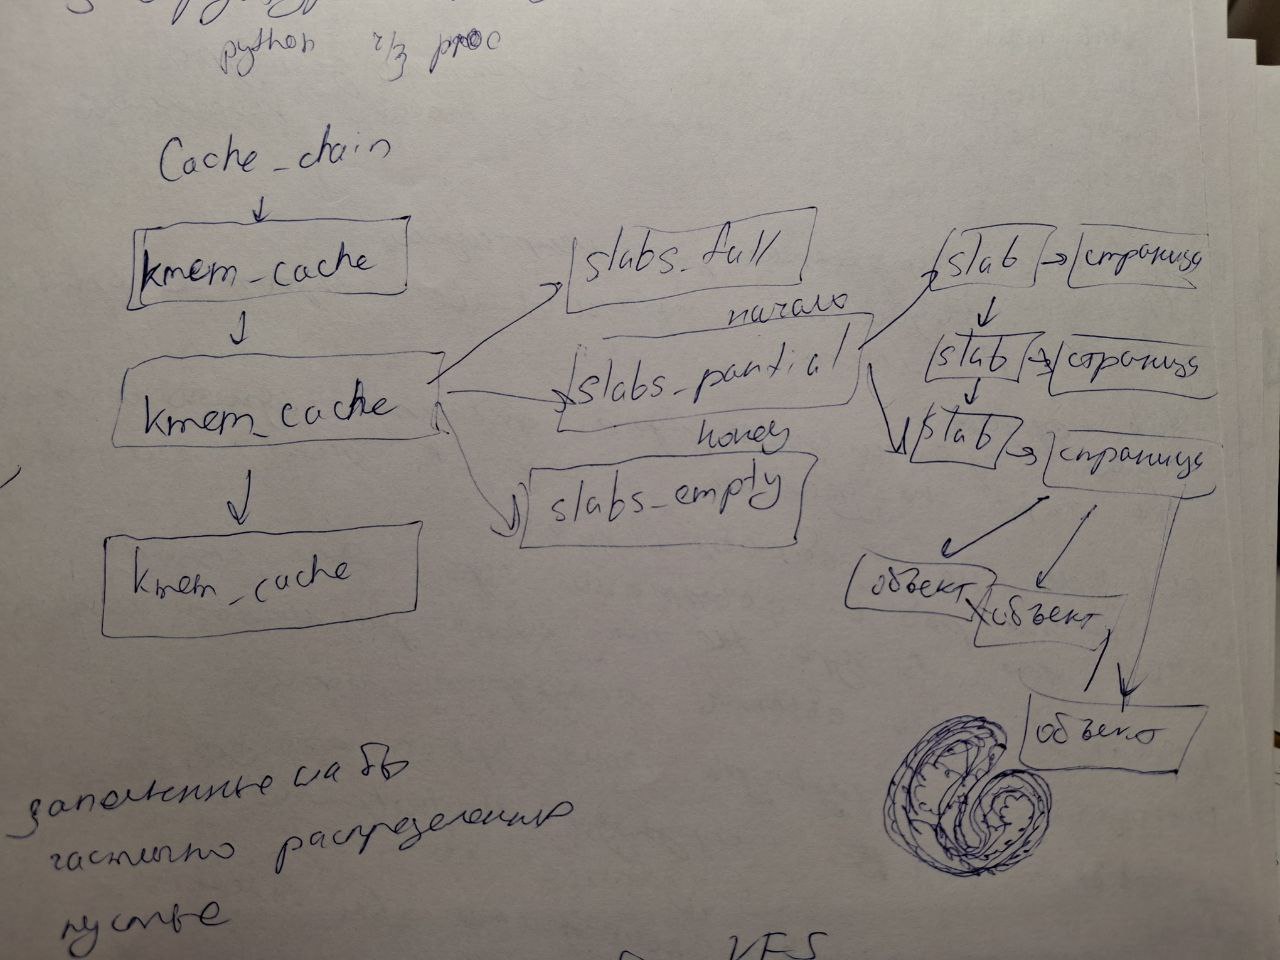 python ч/з proc
Cache_chain
kmem_cache
kmem_cache
kmem_cache
slabs_full
начало
slabs_partial
конец
slabs_empty
slab страница
slab страница
slab страница
объект
объект
объект
заполненные слабы
частично распределенные
пустые
VFS